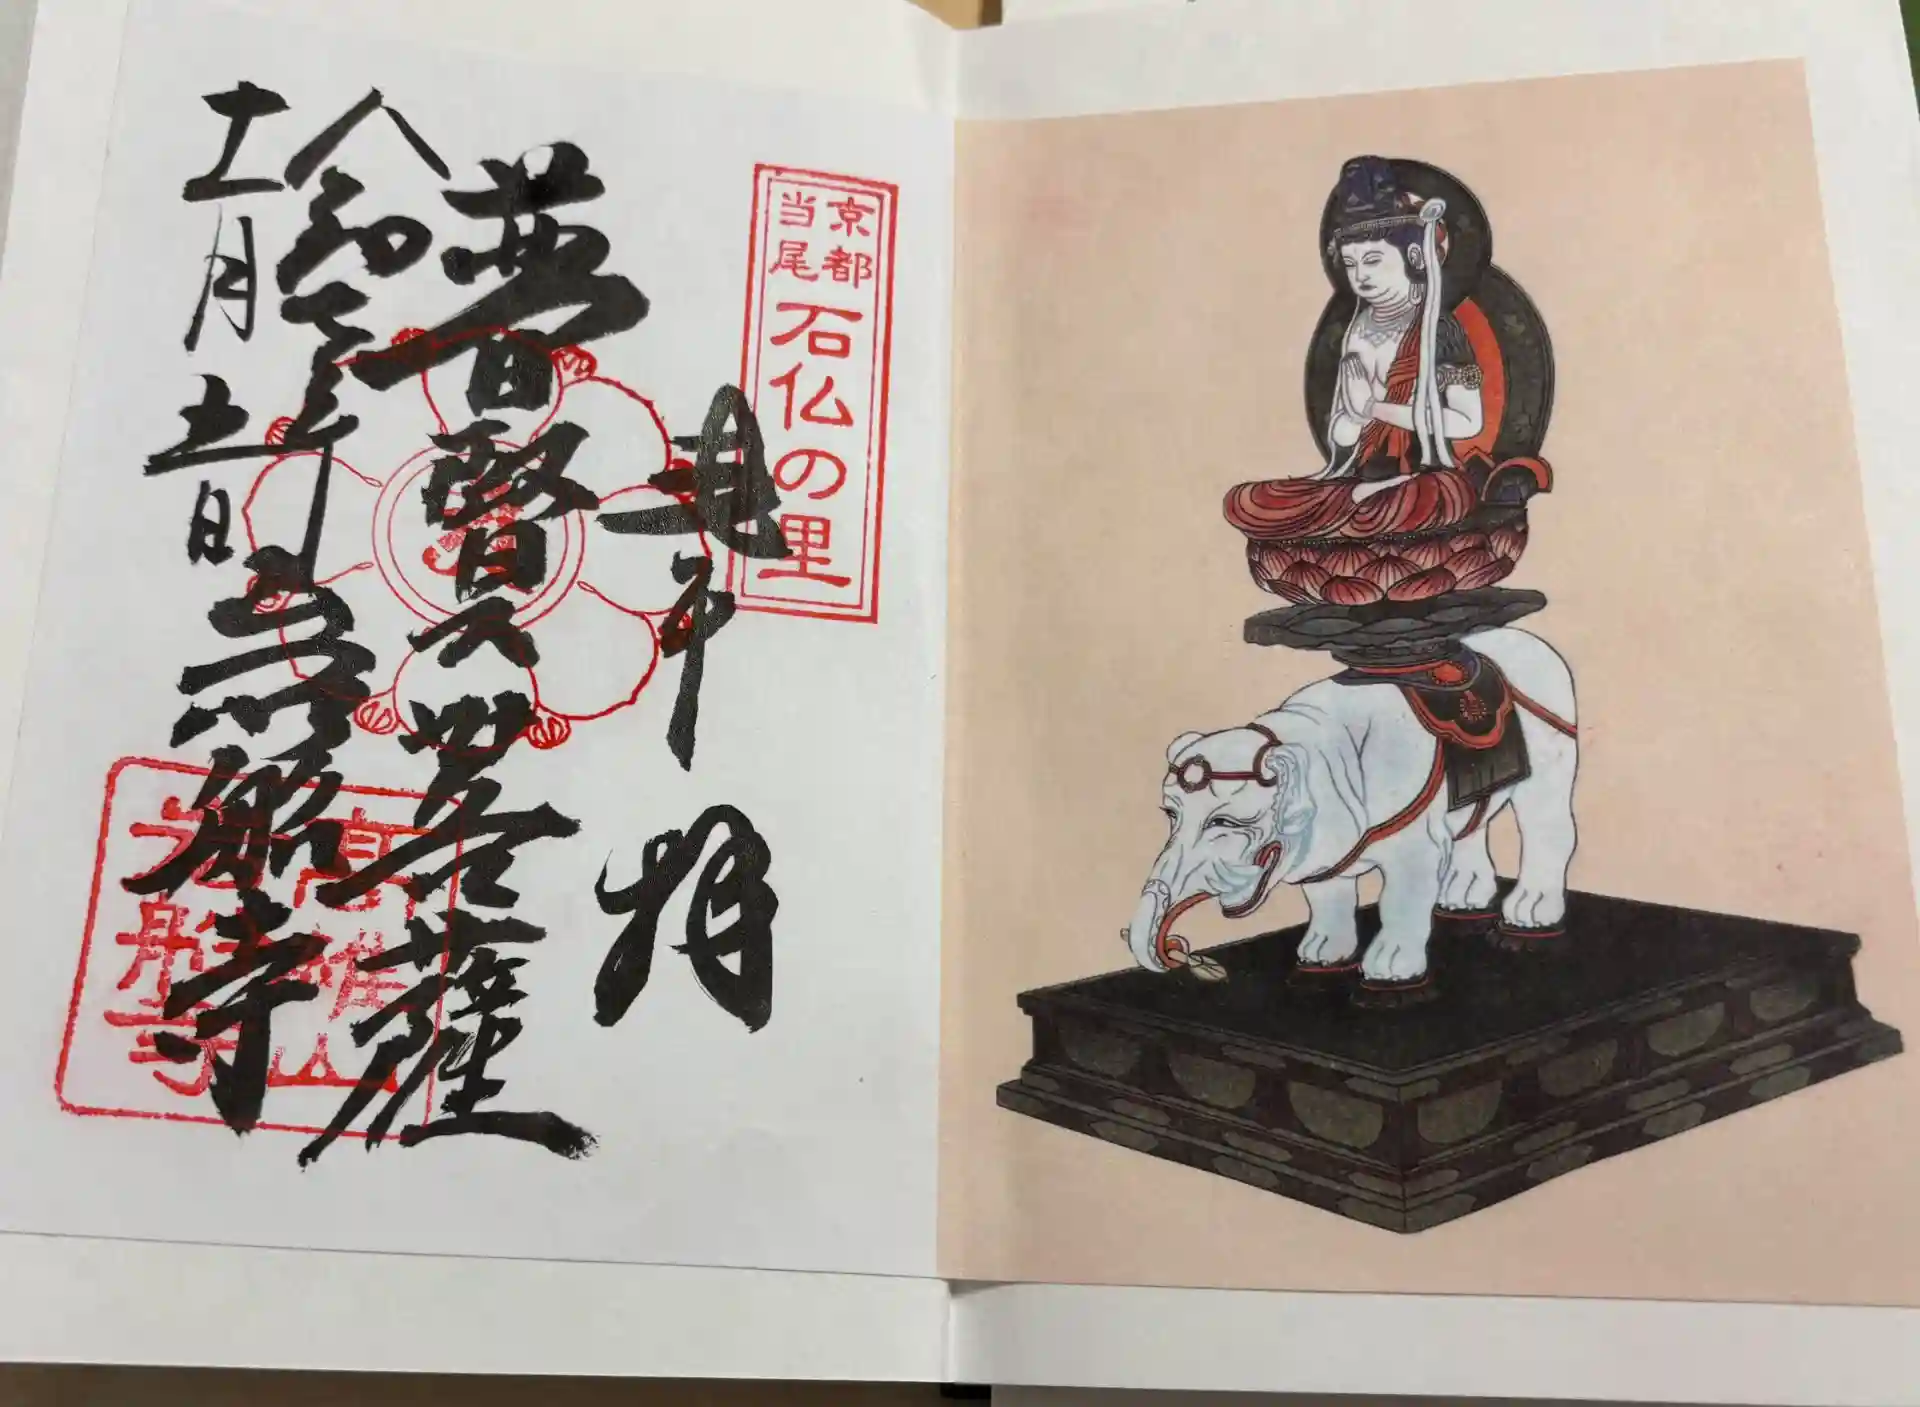 京都
当尾
石仏の里
奉拝
普賢菩薩
令和
年
十一月
日
岩船寺
高雄山
岩船寺